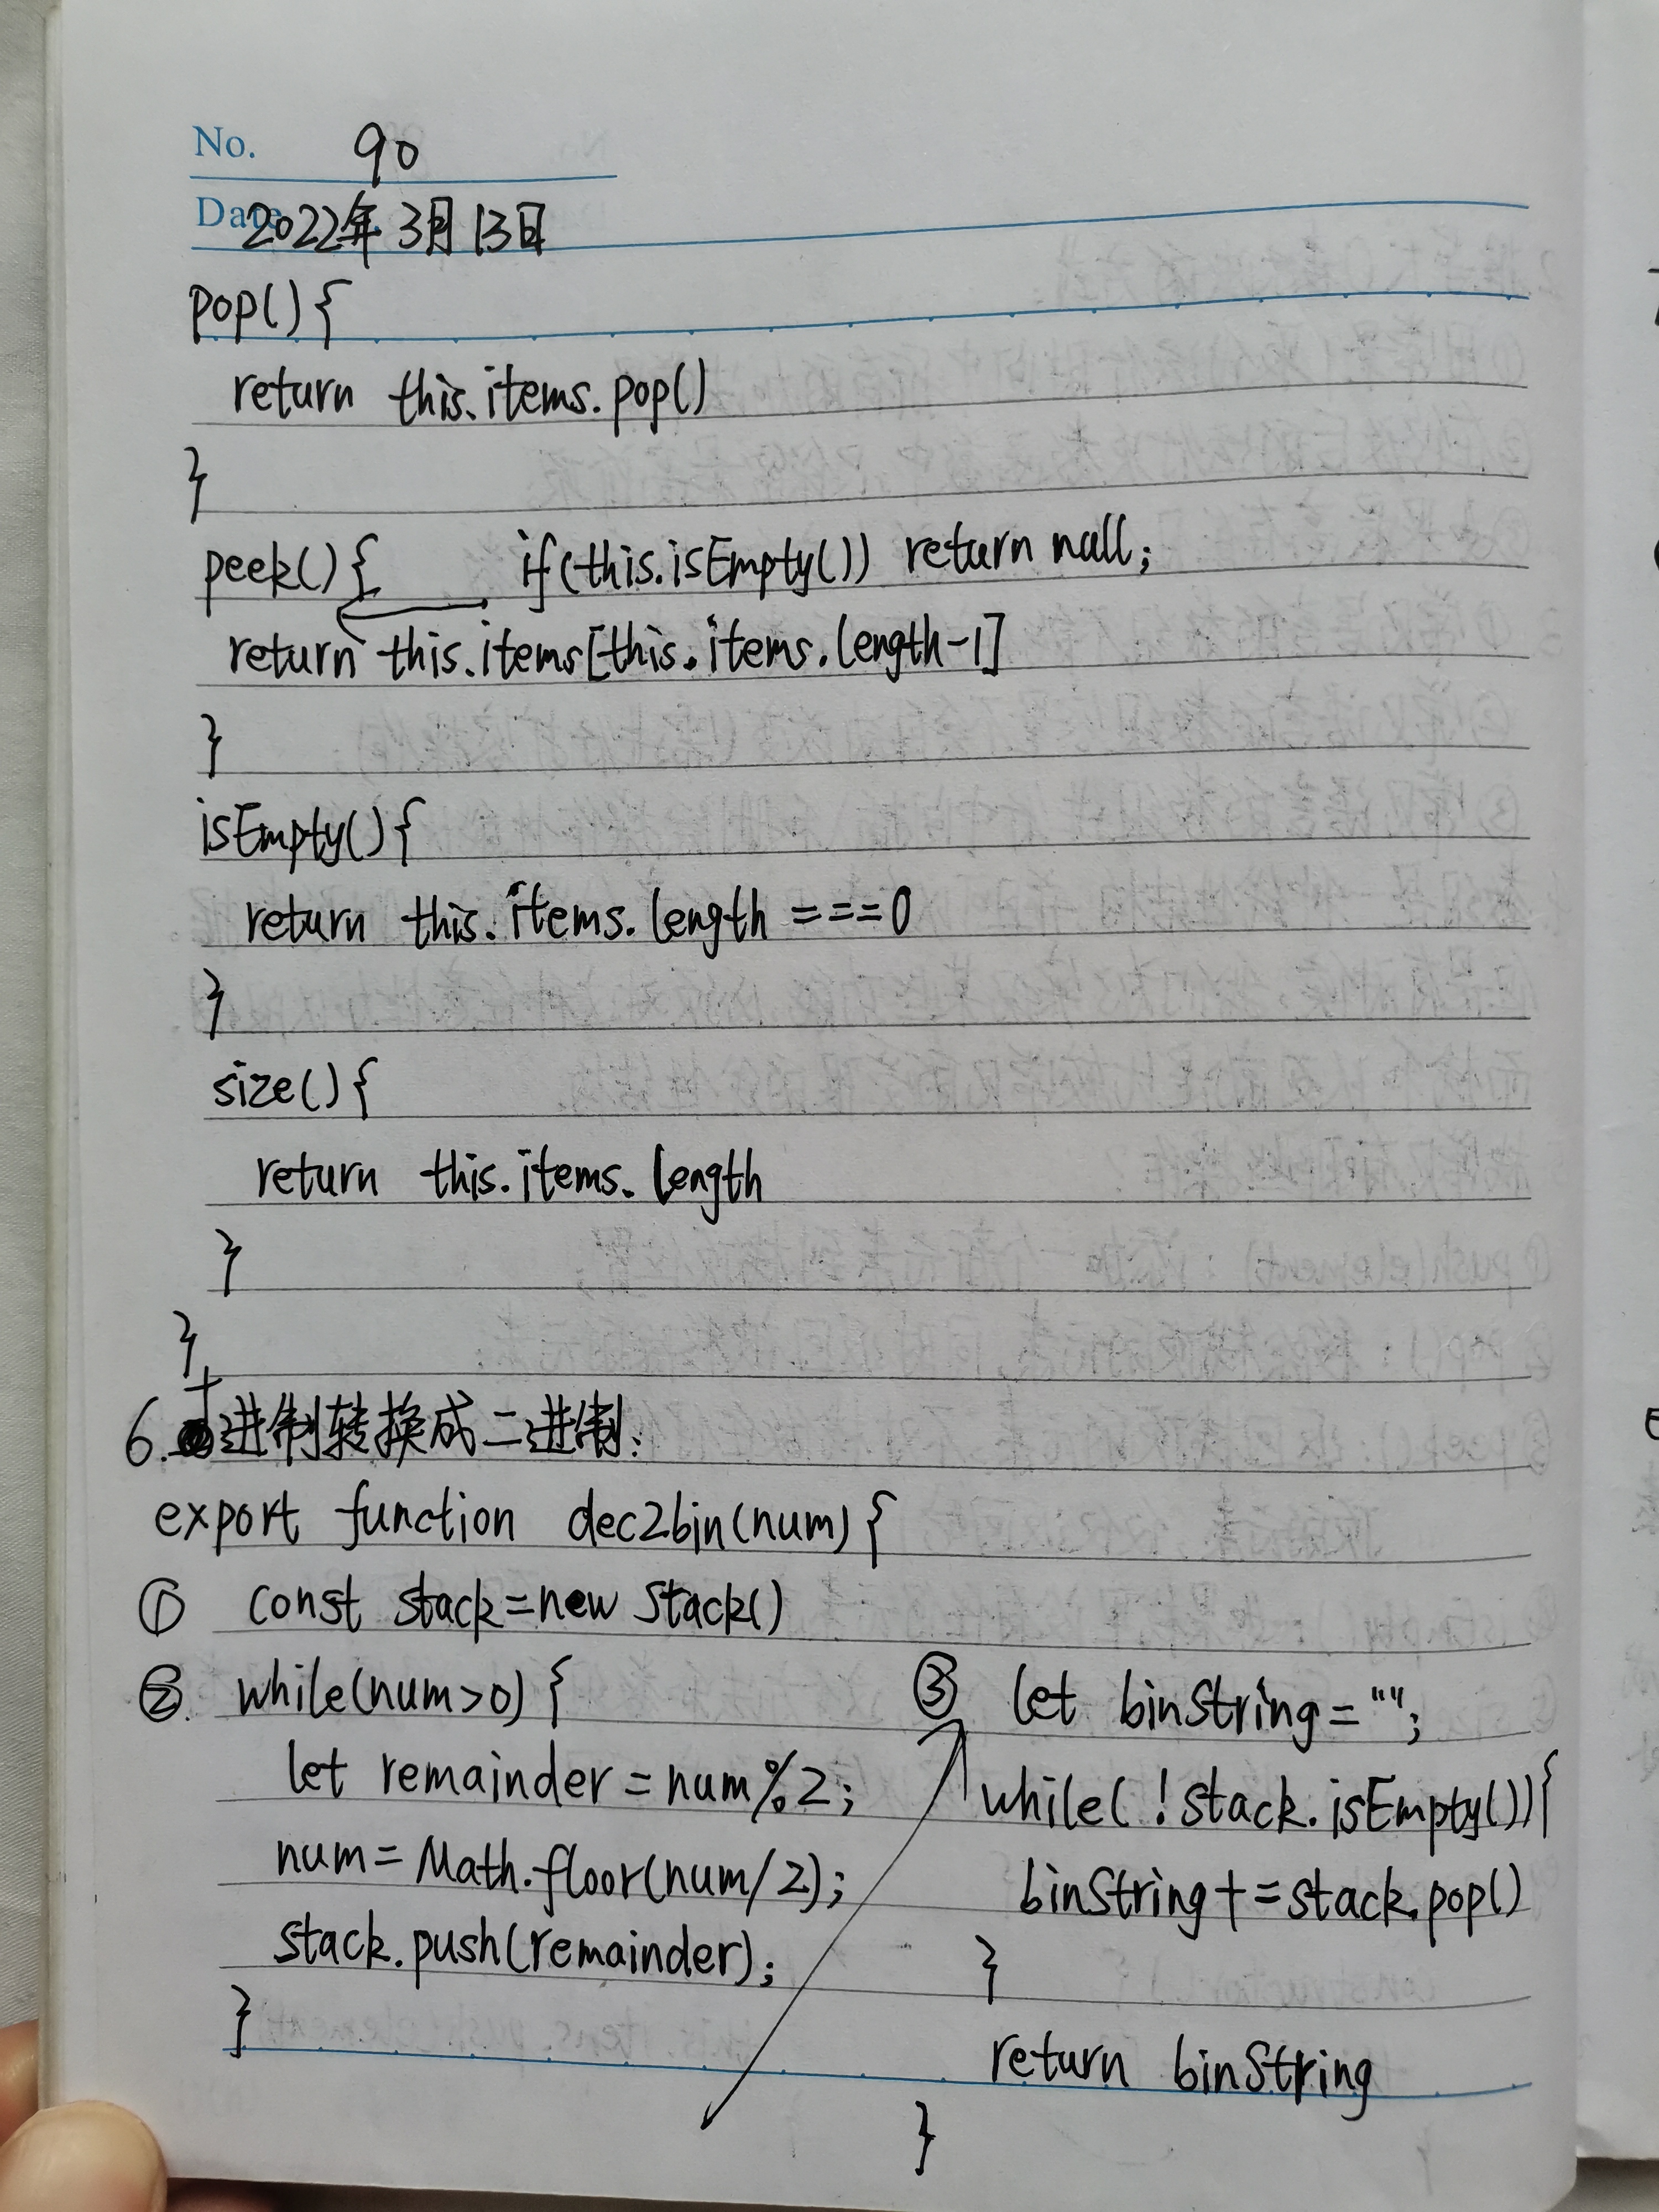 No. 90
Date 2022年3月13日
pop(){
return this.items.pop()
}
peek(){ if(this.isEmpty()) return null;
return this.items[this.items.length-1]
}
isEmpty(){
return this.items.length ===0
}
size(){
return this.items.length
}
}
6.十进制转换成二进制:
export function dec2bin(num){
① const stack=new Stack()
② while(num>0){
let remainder=num%2;
num=Math.floor(num/2);
stack.push(remainder);
}
③ let binString="";
while(!stack.isEmpty()){
binString+=stack.pop()
}
return binString
}